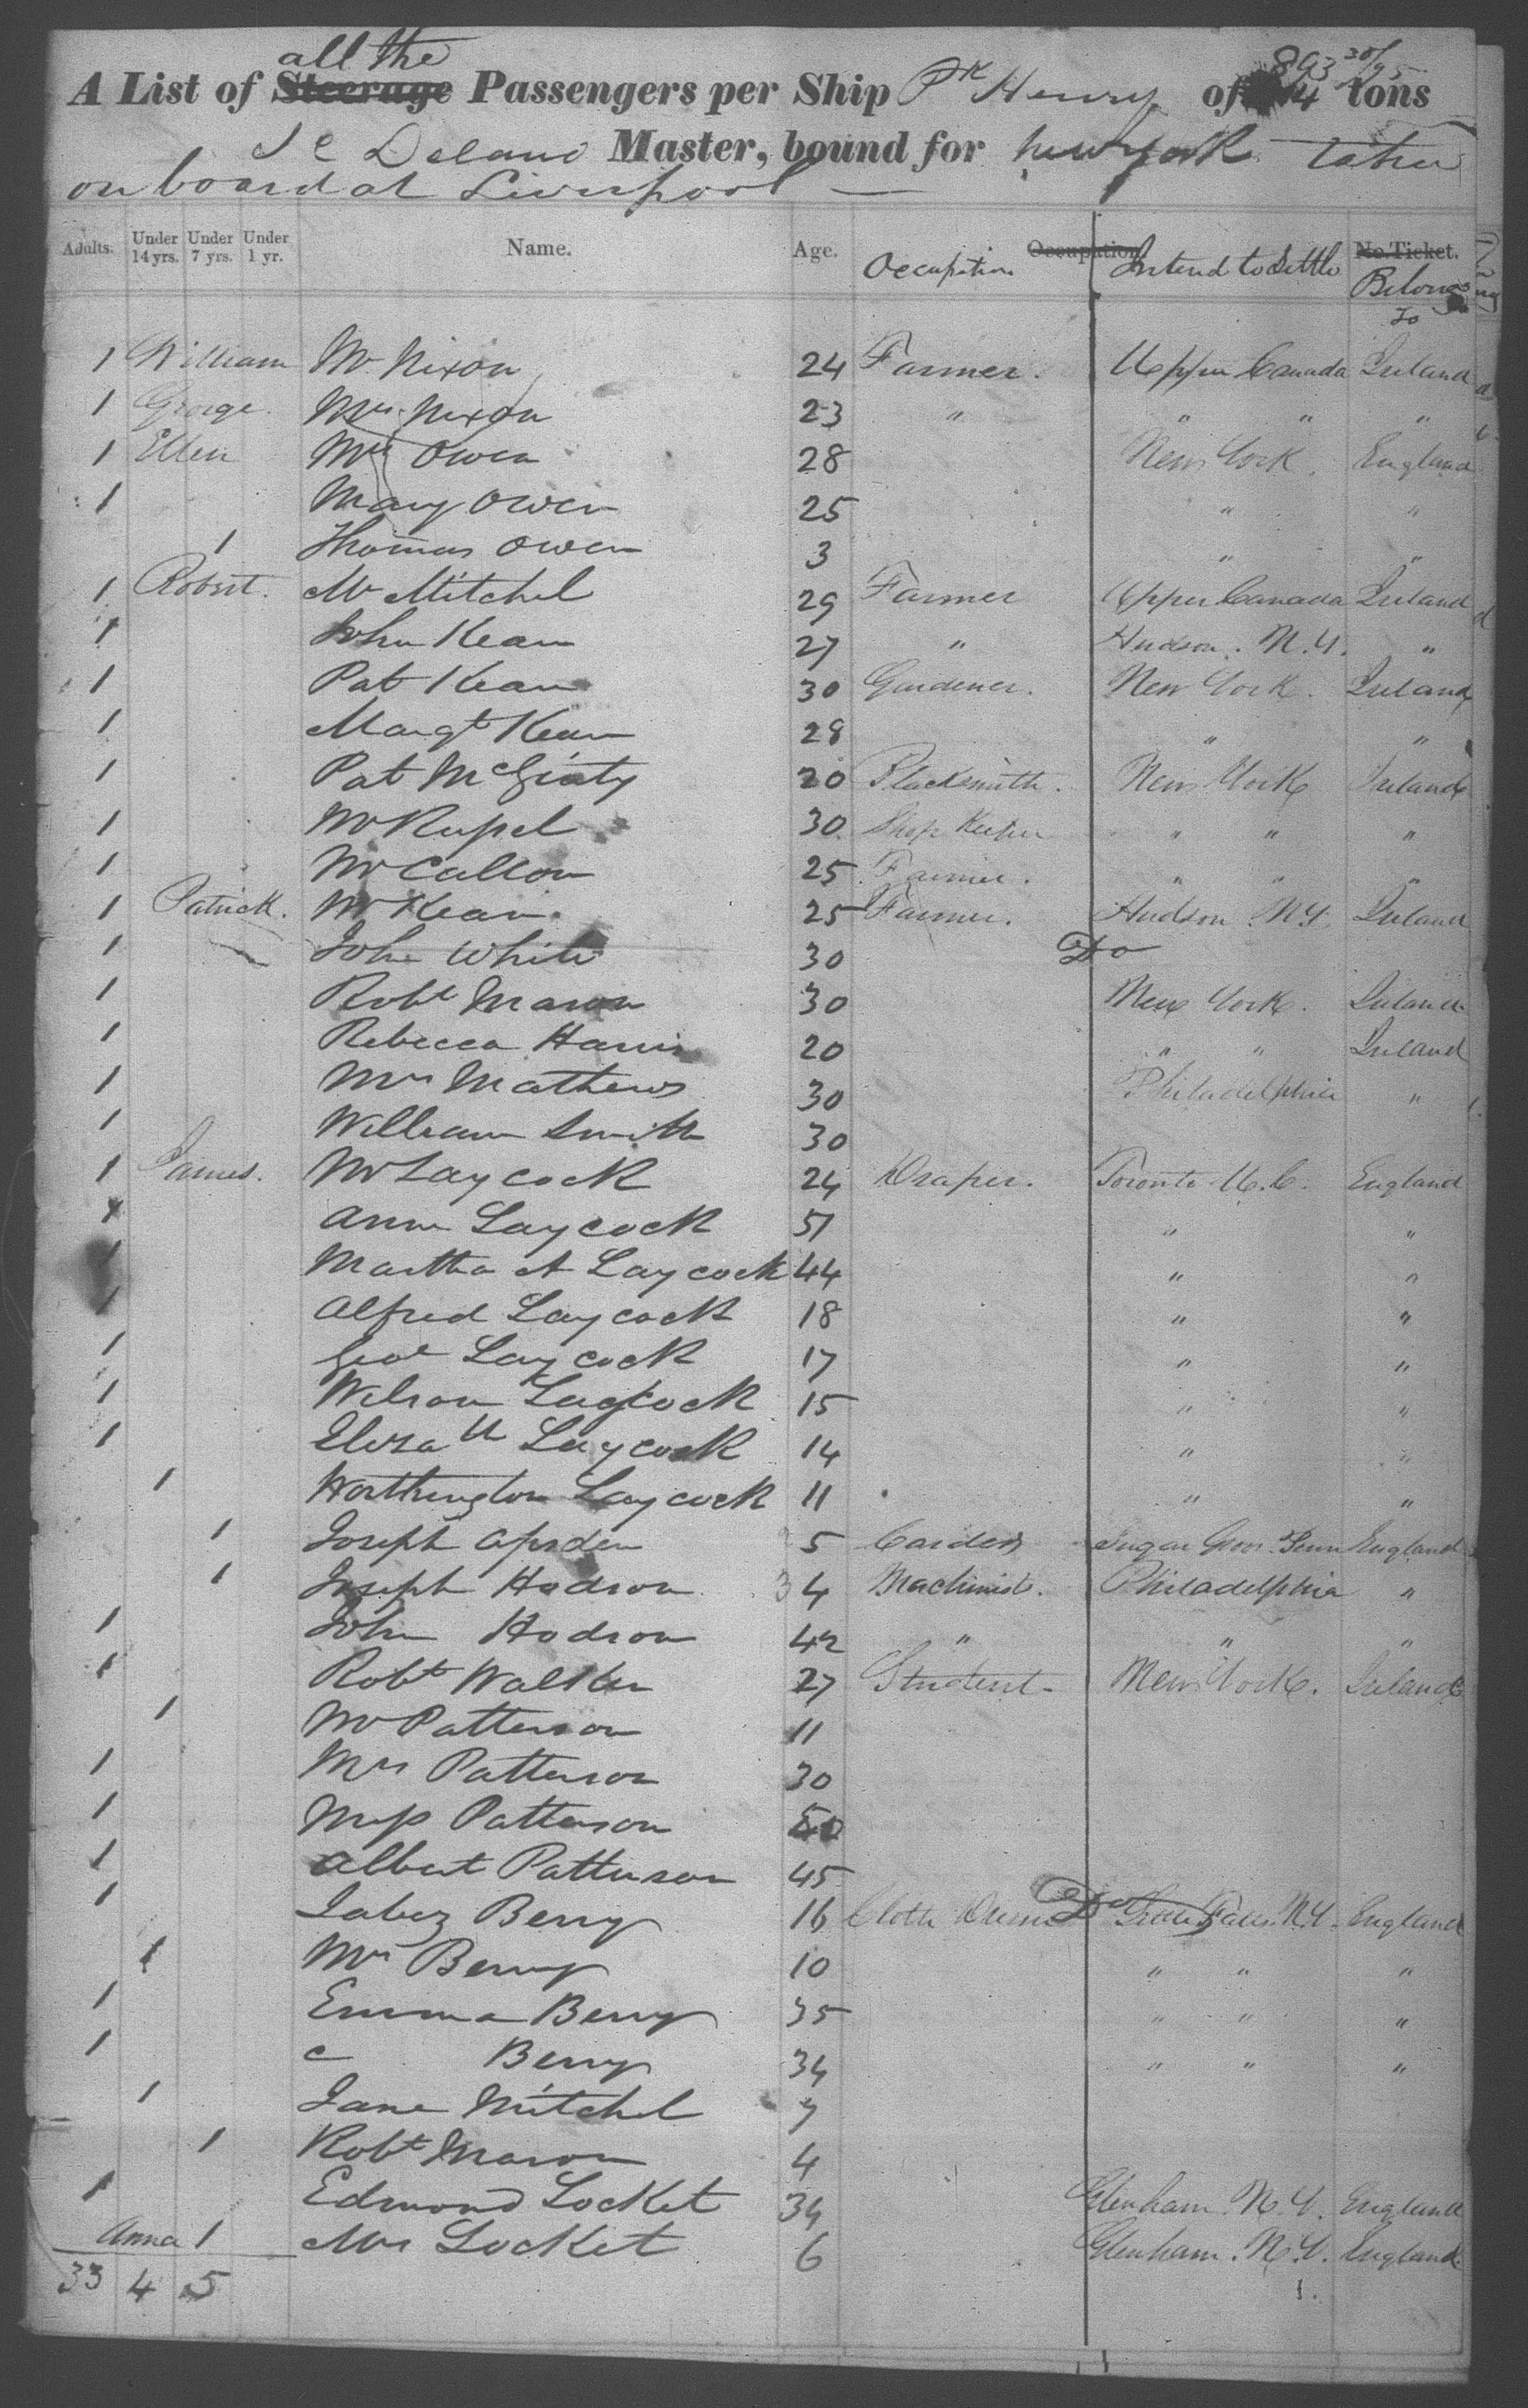 all the
A List of Steerage Passengers per Ship Pk Henry of 893 30/95 tons
J C Delano Master, bound for New York taken
on board at Liverpool —
Adults. Under 14 yrs. Under 7 yrs. Under 1 yr. Name. Age. Occupation Occupation Intend to Settle No. Ticket. Belongs to
1 William Mr Nixon 24 Farmer. Upper Canada Ireland
1 George. Mrs Nixon 23 " " " "
1 Ellen Mrs Owen 28 New York. England
1 Mary Owen 25 " "
1 Thomas Owen 3 " "
1 Robert. Mr Mitchel 29 Farmer Upper Canada Ireland
1 John Kean 27 " Hudson. N.Y. "
1 Pat Kean 30 Gardener. New York. Ireland
1 Margt Kean 28 " "
1 Pat McGinty 20 Blacksmith. New York Ireland
1 Mr Russel 30 Shop Keeper " " "
1 Mr Callon 25 Farmer. " " "
1 Patrick. Mr Kean 25 Farmer. Hudson. N.Y. Ireland
1 John White 30 Do
1 Robt Mason 30 New York. Ireland
1 Rebecca Harris 20 " " Ireland
1 Mrs Mathews 30 Philadelphia "
1 William Smith 30
1 James. Mr Laycock 24 Draper. Toronto U.C. England
1 Ann Laycock 51 " "
1 Martha A Laycock 44 " "
1 Alfred Laycock 18 " "
1 Geoe Laycock 17 " "
1 Wilson Laycock 15 " "
1 Elizath Laycock 14 " "
1 Worthington Laycock 11 " "
1 Joseph 5 Carder Sugar England
1 Joseph Hodson 34 Machinist. Philadelphia "
1 John Hodson 42 " " "
1 Robt Walker 27 Student New York. Ireland
1 Mr Patterson 11
1 Mrs Patterson 30
1 Miss Patterson
1 Albert Patterson 45
1 Jabez Berry 16 Cloth Do Little Falls N.Y. England
1 Mrs Berry 10 " " "
1 Emma Berry 35 " " "
1 C Berry 34 " " "
1 Jane Mitchel 7
1 Robt Mason 4
1 Edmond Locket 34 Glenham. N.Y. England
Anna 1 Mrs Locket 6 Glenham. N.Y. England
33 4 5